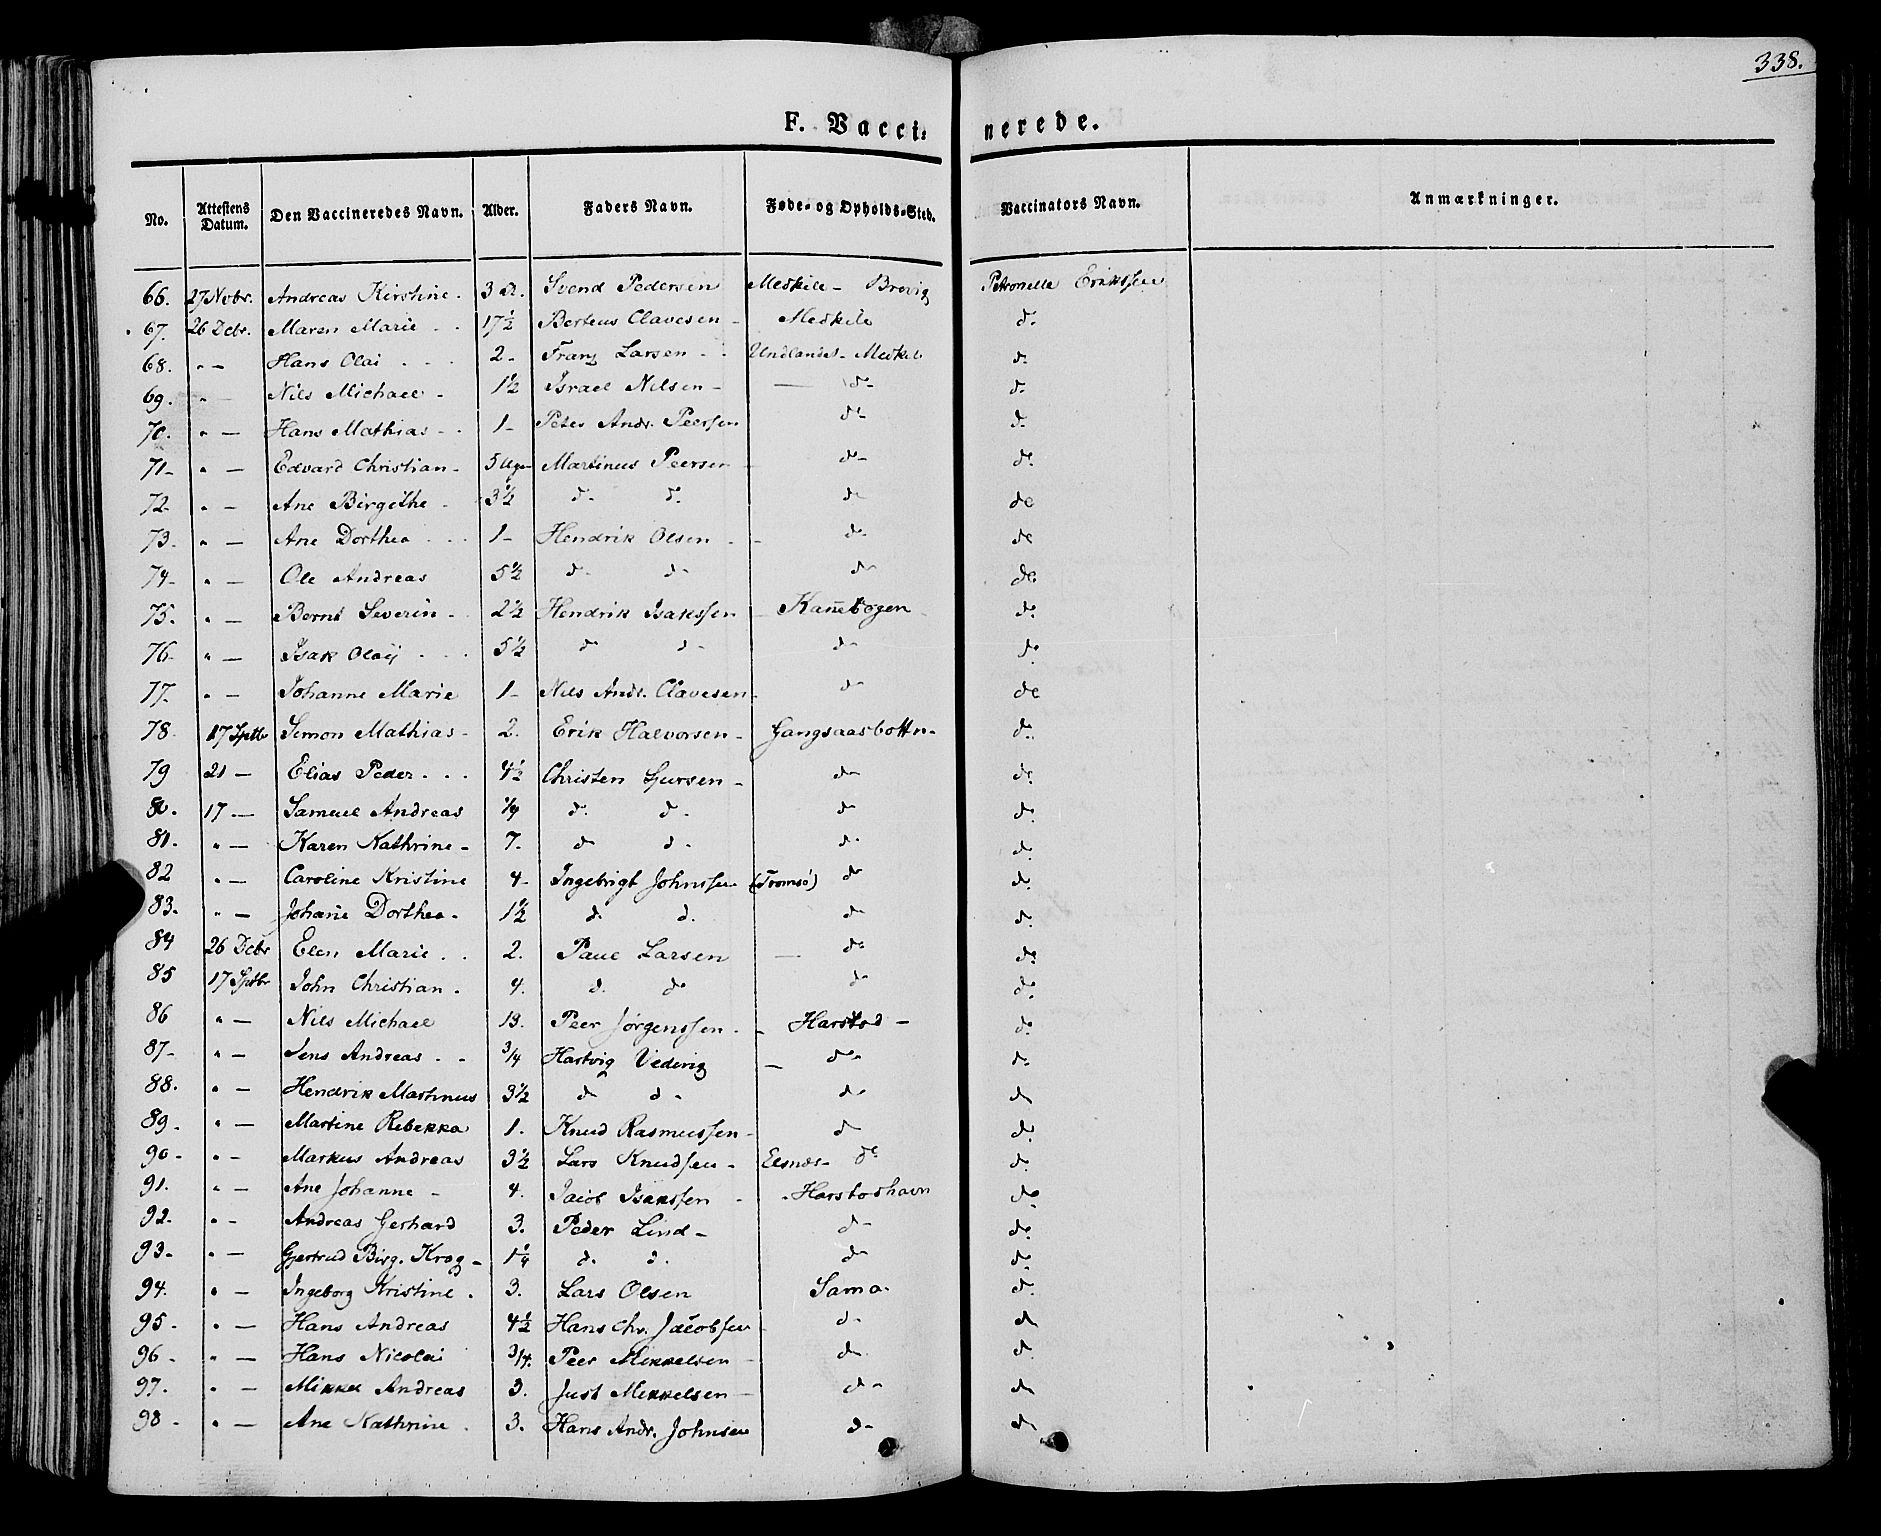 338.
F. Vacci: nerede.
No. Attestens Datum. Den Vaccineredes Navn. Alder. Faders Navn. Føde- og Opholds-Sted. Vaccinators Navn. Anmærkninger.
66. 27 Novbr. Andreas Kirstine. 3 A. Svend Pedersen Medkile - Brevig Petronelle Erikssen
67. 26 Debr. Maren Marie - - 17½ Berteus Clavesen - Medkile do
68. " - Hans Olai - - - 2 - Franz Larsen - - Undlandet - Medkil do
69. " - Nils Michael - 1½ Israel Nilsen - — do - do
70. " — Hans Mathias - - 1 - Peter Andr. Peerssen do - do
71 - " — Edvard Christian - 5 Uger Martinus Peersen do - do
72. " - Ane Birgithe - 3½ do do. do do
73. " — Ane Dorthea - - - 1 - Hendrik Olsen - - do do
74 - " — Ole Andreas 5½ do - do - do do
75. " — Bernt Severin - 2½ Hendrik Isakssen Kannebogen do
76 - " — Isak Olaij - - - 5½ do do - do - do
77. " - Johanne Marie 1 - Nils Andr. Clavesen - do do
78. 17 Sptbr Simon Mathias - 2. Erik Halvorsen - Gangsaasbottn - do
79 21 — Elias Peder - - - 4½ Christen Sjursen - do do
80. 17 — Samuel Andreas do. do - do do
81. " — Karen Kathrine - 7. do do - do do
82 " — Caroline Kristine 4 - Ingebrigt Johnssen (Tromsö) do do
83. " — Johanne Dorthea - 1½ do do do do
84 26 Debr Elen Marie - - 2. Paul Larsen — do do
85 17 Sptbr John Christian - 4. do do do do
86 " — Nils Michael 13. Peer Jörgenssen - - Harstad - do
87 - " — Jens Andreas - - 3/4 Hartvig Vedivig — do - do
88. " - Hendrik Martinus 3½ do do - do do
89. " — Martine Rebekka 1. Knud Rasmussen - do do
90 - " - Markus Andreas 3½ Lars Knudssen - Elsnes - do do
91. " — Ane Johanne - 4. Jacob Isakssen - - Harstadhavn do
92. " - Andreas Gerhard 3. Peder Lind - do - do
93 - " — Gjertrud Birg. Krog - 1¼ do. do. do do
94. " — Ingeborg Kristine. 3. Lars Olsen Sama. do
95 - " — Hans Andreas 4½ Hans Chr. Jacobsen do - do
96 - " — Hans Nicolai 3/4. Peer Mikkelsen do do
97. " — Mikkel Andreas 3. Just Mikkelsen — do - do
98 - " — Ane Kathrine. 3. Hans Andr. Johnsen do - do